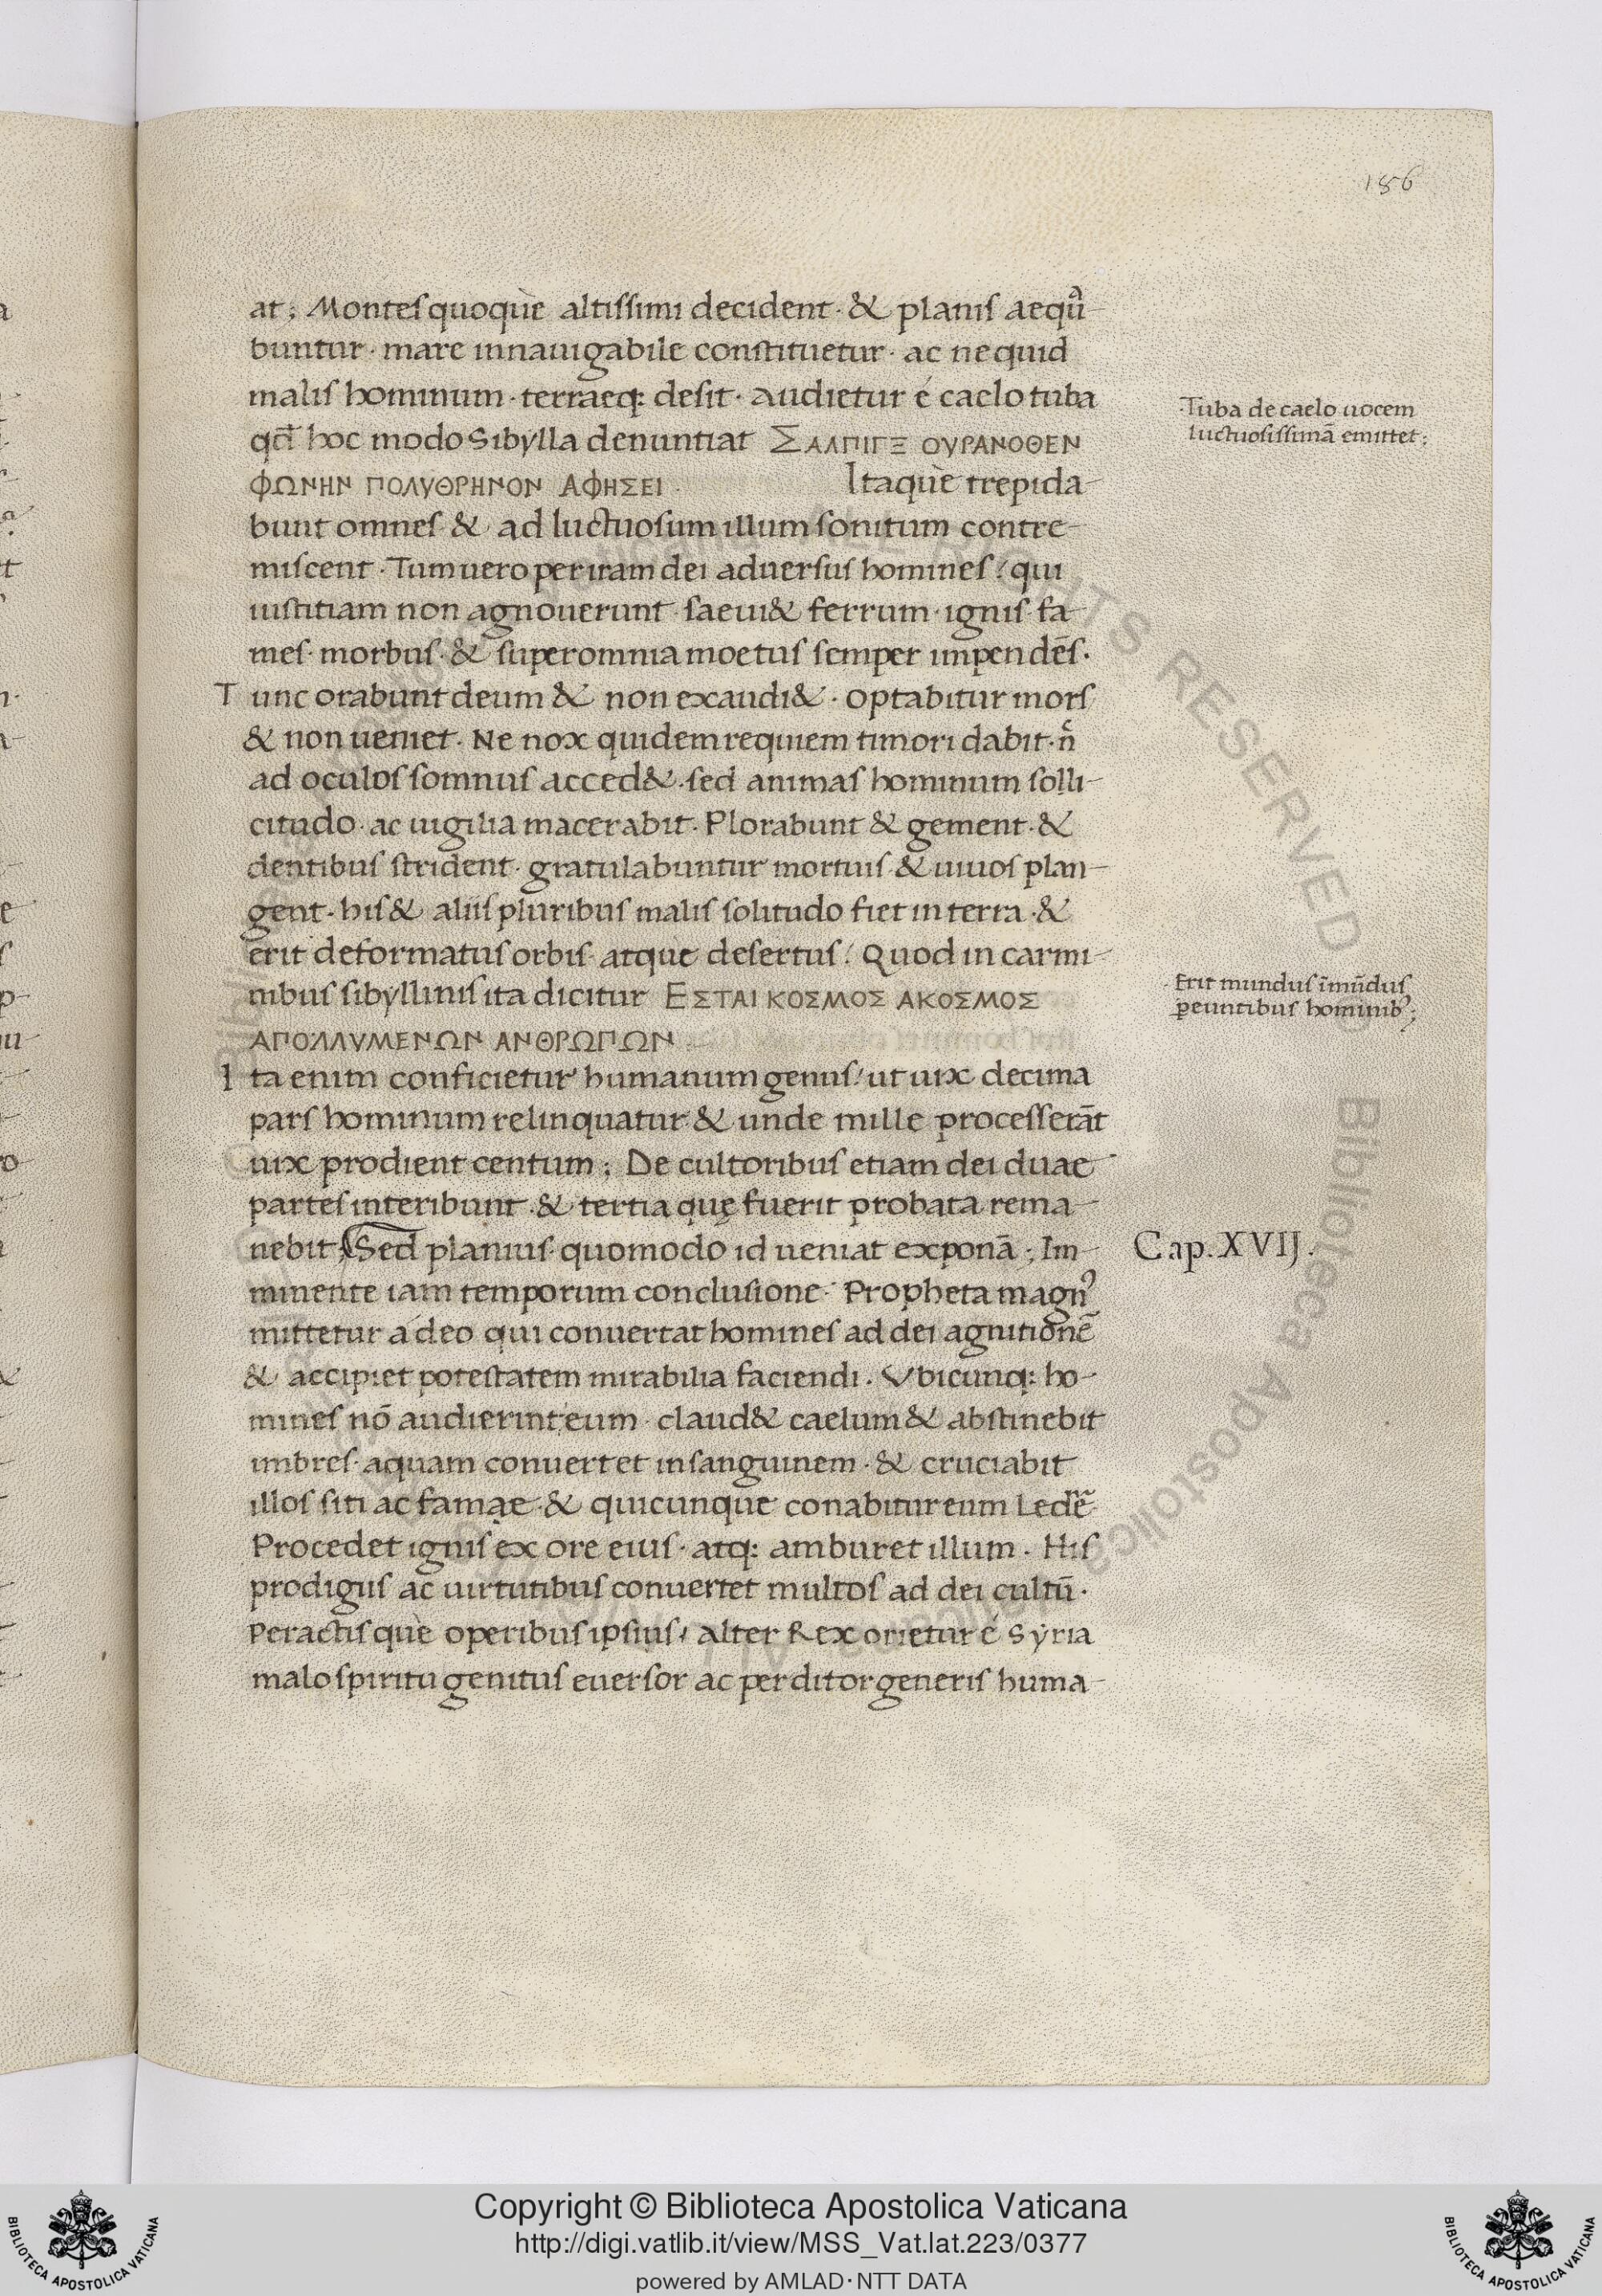 186
at; Montes quoque altissimi decident · & planis aequa͂-
buntur · mare innauigabile constituetur · ac nequid
malis hominum · terraeq: desit · Audietur é caelo tuba
qd̄ hoc modo Sibylla denuntiat ΣΑΛΠΙΓΞ ΟΥΡΑΝΟΘΕΝ
ΦΩΝΗΝ ΠΟΛΥΘΡΗΝΟΝ ΑΦΗΣΕΙ · Itaquè trepida-
bunt omnes & ad luctuosum illum sonitum contre-
miscent · Tum uero per iram dei aduersus homines / qui
iustitiam non agnouerunt · saeui& ferrum · ignis · fa-
mes · morbus · & super omnia moetus semper impendēs ·
Tunc orabunt deum & non exaudi& · optabitur mors
& non ueniet · Ne nox quidem requiem timori dabit · n̄
ad oculos somnus acced& · sed animas hominum solli-
citudo · ac uigilia macerabit · Plorabunt & gement · &
dentibus strident · gratulabuntur mortuis · & uiuos plan-
gent · his & aliis pluribus malis solitudo fiet in terra · &
erit deformatus orbis · atque desertus / Quod in carmi-
nibus sibyllinis ita dicitur ΕΣΤΑΙ ΚΟΣΜΟΣ ΑΚΟΣΜΟΣ
ΑΠΟΛΛΥΜΕΝΩΝ ΑΝΘΡΩΠΩΝ ·
Ita enim conficietur humanum genus / ut uix decima
pars hominum relinquatur · & unde mille processerāt
uix prodient centum ; De cultoribus etiam dei duae
partes interibunt · & tertia quę fuerit probata rema-
nebit ; Sed planius · quomodo id ueniat exponā ; Im-
minente iam temporum conclusione · Propheta magnꝰ
mittetur a deo qui conuertat homines ad dei agnitionē
& accipiet potestatem mirabilia faciendi . Vbicunq: ho-
mines nō audierint eum · claud& caelum & abstinebit
imbres · aquam conuertet in sanguinem · & cruciabit
illos siti ac famae · & quicunque conabitur eum Ledēr̄
Procedet ignis ex ore eius · atq: amburet illum . His
prodigiis ac uirtutibus conuertet multos ad dei cultū ·
Peractisquè operibus ipsius / Alter Rex orietur é Syria
malo spiritu genitus euersor ac perditor generis huma-
Tuba de caelo uocem
luctuosissimā emittet ;
Erit mundus īmūdus
ꝑeuntibus hominibꝰ ;
Cap. XVIJ.
Copyright © Biblioteca Apostolica Vaticana
http://digi.vatlib.it/view/MSS_Vat.lat.223/0377
powered by AMLAD·NTT DATA
BIBLIOTECA APOSTOLICA VATICANA
BIBLIOTECA APOSTOLICA VATICANA